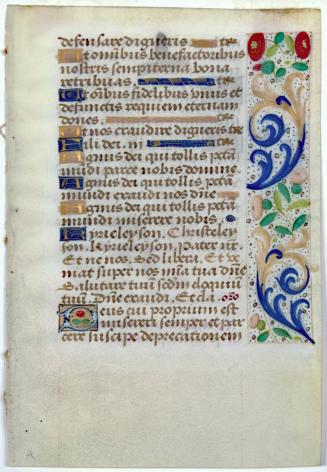 defensare digneris te
Ut omnibus benefactoribus
nostris sempiterna bona
retribuas.
Ut oībus fidelibus vivis et
defunctis requiem eternam
dones.
Ut nos exaudire digneris te
Fili dei. ij
Agnus dei qui tollis pcta
mūdi parce nobis domine.
Agnus dei qui tollis pcta
mundi exaudi nos dn̄e
Agnus dei qui tollis pcta
mundi miserere nobis.
Kyrieleyson. Christeley
son. Kyrieleyson. Pater nr̄.
Et ne nos. Sed libera. Et ve
niat super nos mīa tua dn̄e.
Salutare tuum sedm̄ eloquiū
tuū. Dn̄e exaudi. Et cla. oro
Deus cui proprium est
misereri semper et par
cere suscipe deprecationem